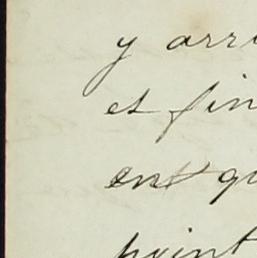 y arri
et fin
ont qu
point